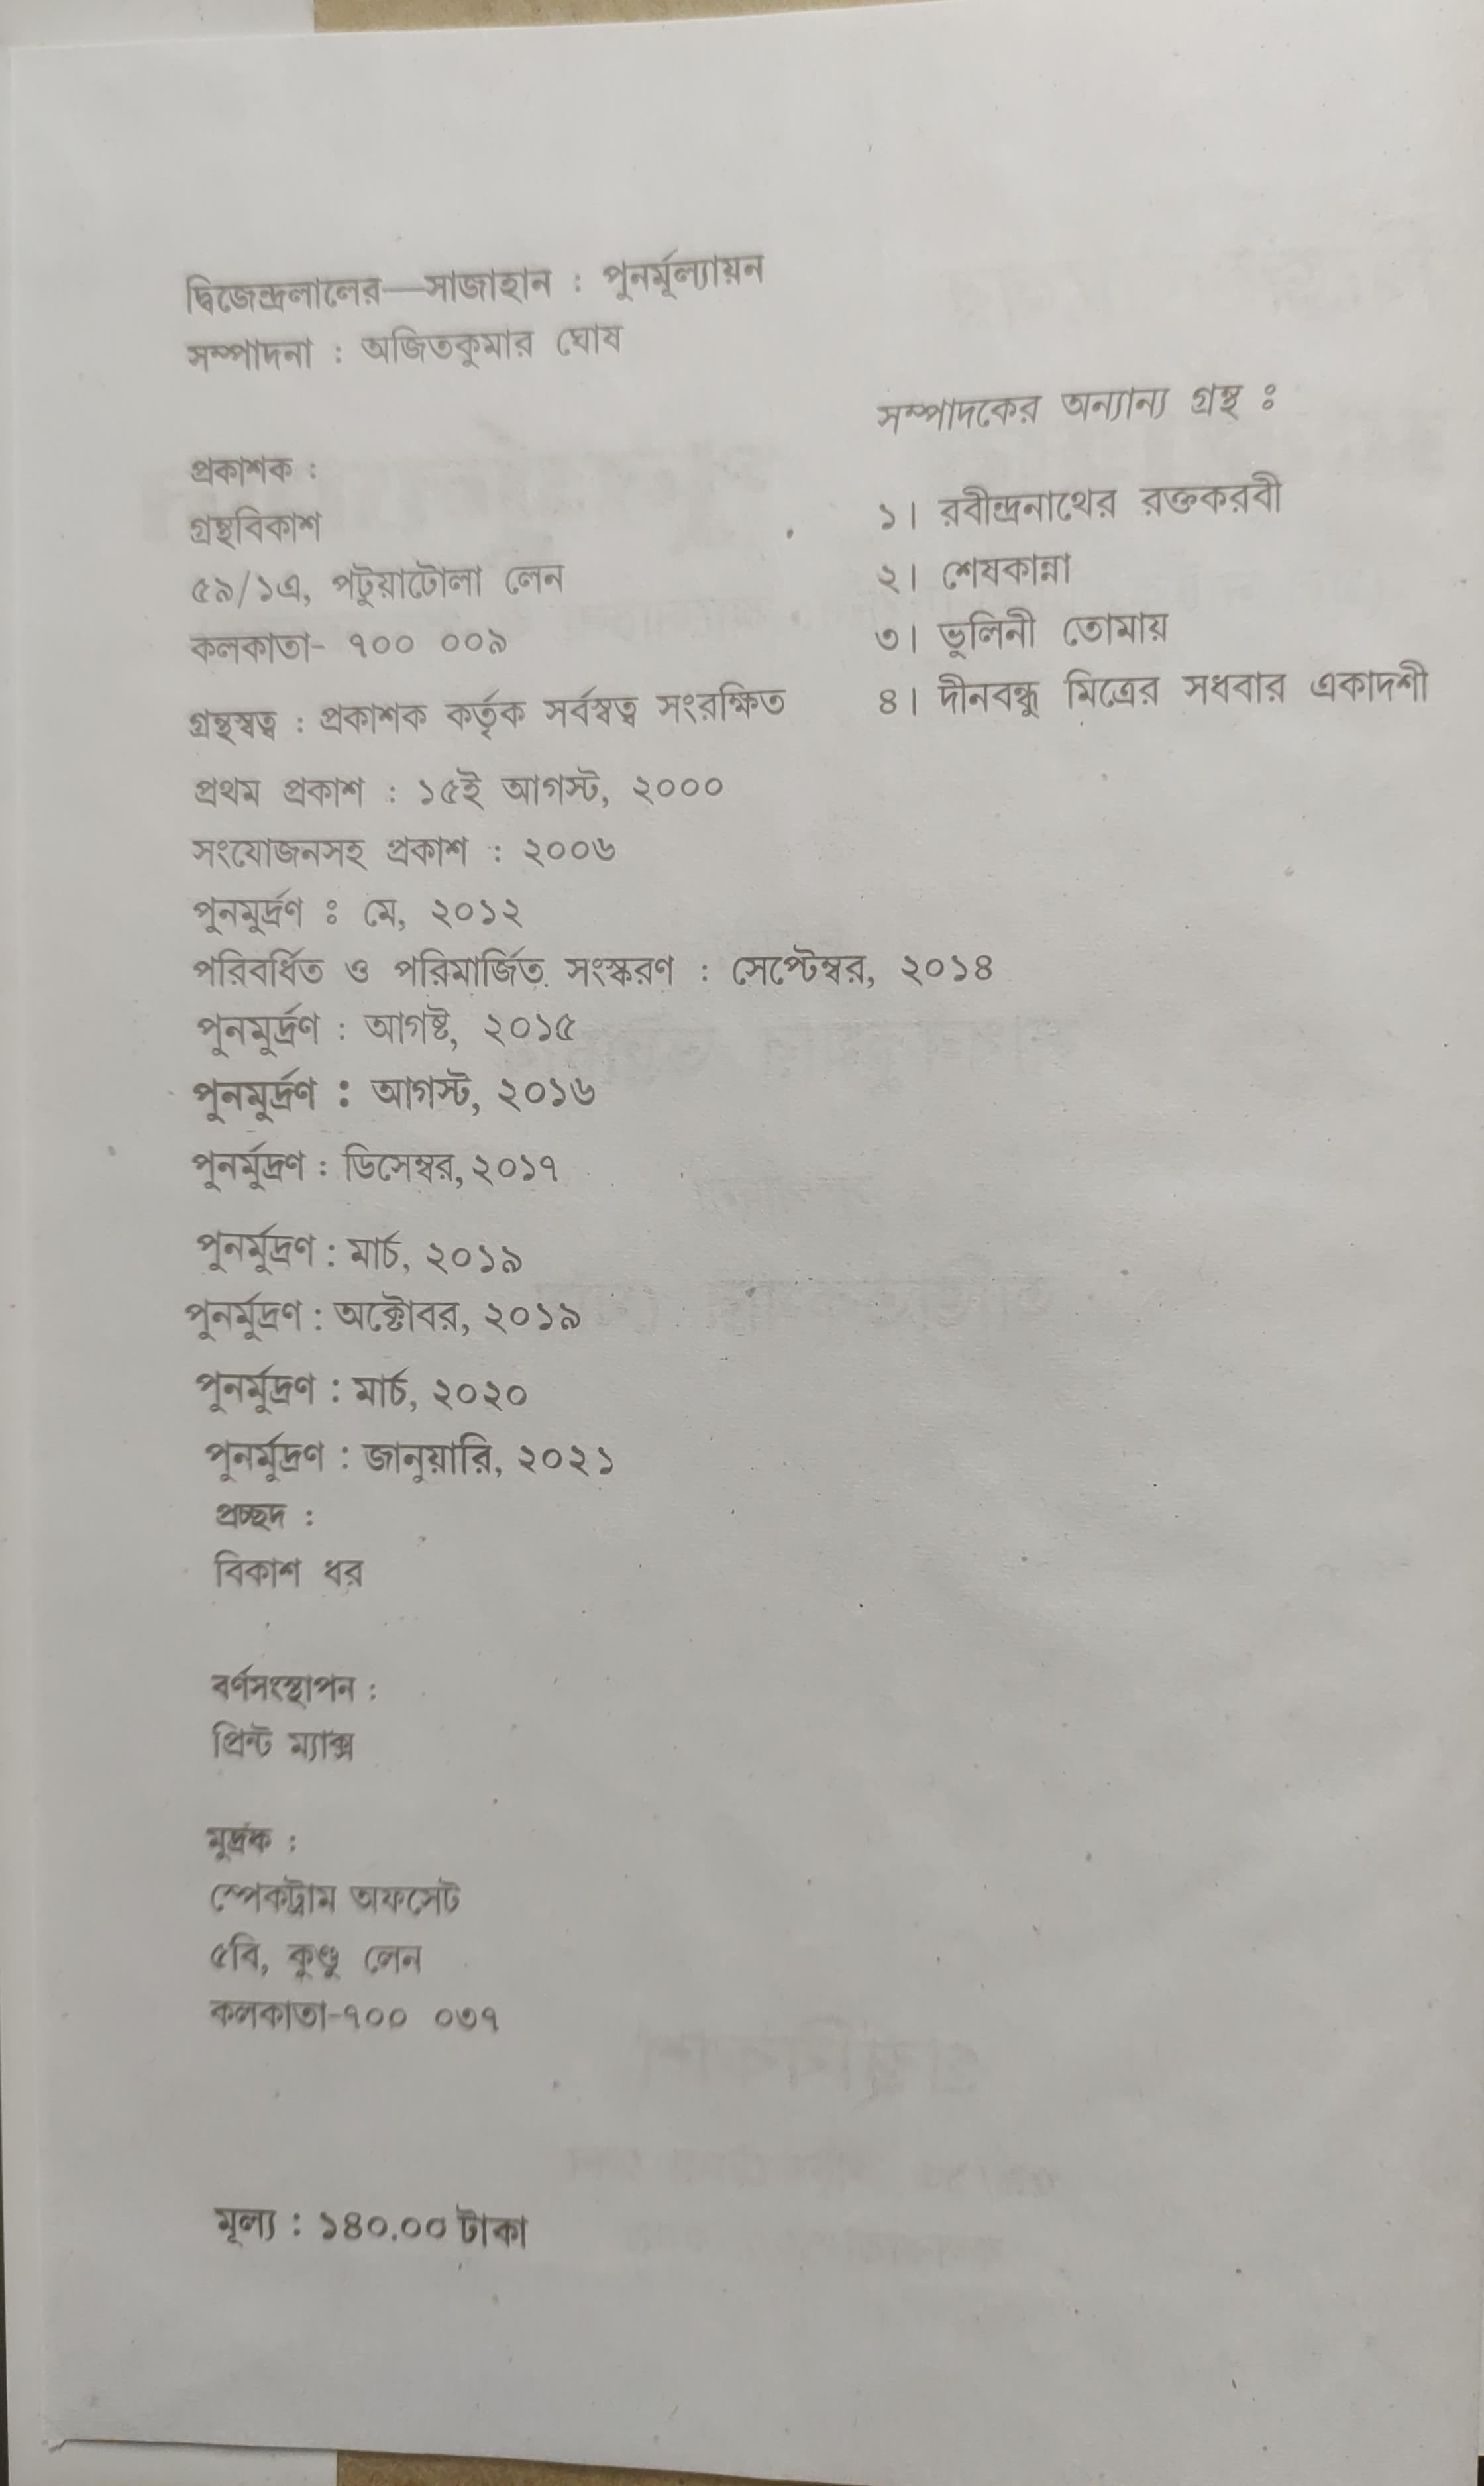 দ্বিজেন্দ্রলালের—সাজাহান : পুনর্মূল্যায়ন
সম্পাদনা : অজিতকুমার ঘোষ
প্রকাশক :
গ্রন্থবিকাশ
৫৯/১এ, পটুয়াটোলা লেন
কলকাতা- ৭০০ ০০৯
গ্রন্থস্বত্ব : প্রকাশক কর্তৃক সর্বস্বত্ব সংরক্ষিত
প্রথম প্রকাশ : ১৫ই আগস্ট, ২০০০
সংযোজনসহ প্রকাশ : ২০০৬
পুনমুর্দ্রণ ঃ মে, ২০১২
পরিবর্ধিত ও পরিমার্জিত সংস্করণ : সেপ্টেম্বর, ২০১৪
পুনমুর্দ্রণ : আগষ্ট, ২০১৫
পুনমুর্দ্রণ : আগস্ট, ২০১৬
পুনর্মুদ্রণ : ডিসেম্বর, ২০১৭
পুনর্মুদ্রণ : মার্চ, ২০১৯
পুনর্মুদ্রণ : অক্টোবর, ২০১৯
পুনর্মুদ্রণ : মার্চ, ২০২০
পুনর্মুদ্রণ : জানুয়ারি, ২০২১
প্রচ্ছদ :
বিকাশ ধর
বর্ণসংস্থাপন :
প্রিন্ট ম্যাক্স
মুদ্রক :
স্পেকট্রাম অফসেট
৫বি, কুণ্ডু লেন
কলকাতা-৭০০ ০৩৭
মূল্য : ১৪০.০০ টাকা
সম্পাদকের অন্যান্য গ্রন্থ ঃ
১। রবীন্দ্রনাথের রক্তকরবী
২। শেষকান্না
৩। ভুলিনী তোমায়
৪। দীনবন্ধু মিত্রের সধবার একাদশী